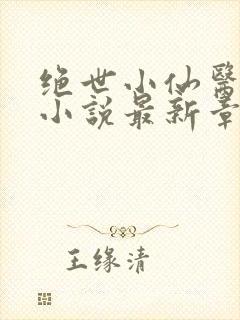 绝世小仙醫
小説最新章
王缘清